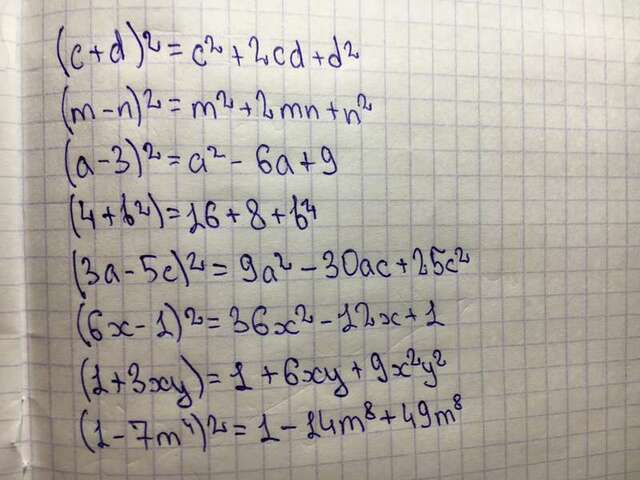 (c+d)² = c² + 2cd + d²
(m-n)² = m² + 2mn + n²
(a-3)² = a² - 6a + 9
(4+b²) = 16 + 8 + b⁴
(3a-5c)² = 9a² - 30ac + 25c²
(6x-1)² = 36x² - 12x + 1
(1+3xy) = 1 + 6xy + 9x²y²
(1-7m⁴)² = 1 - 14m⁸ + 49m⁸